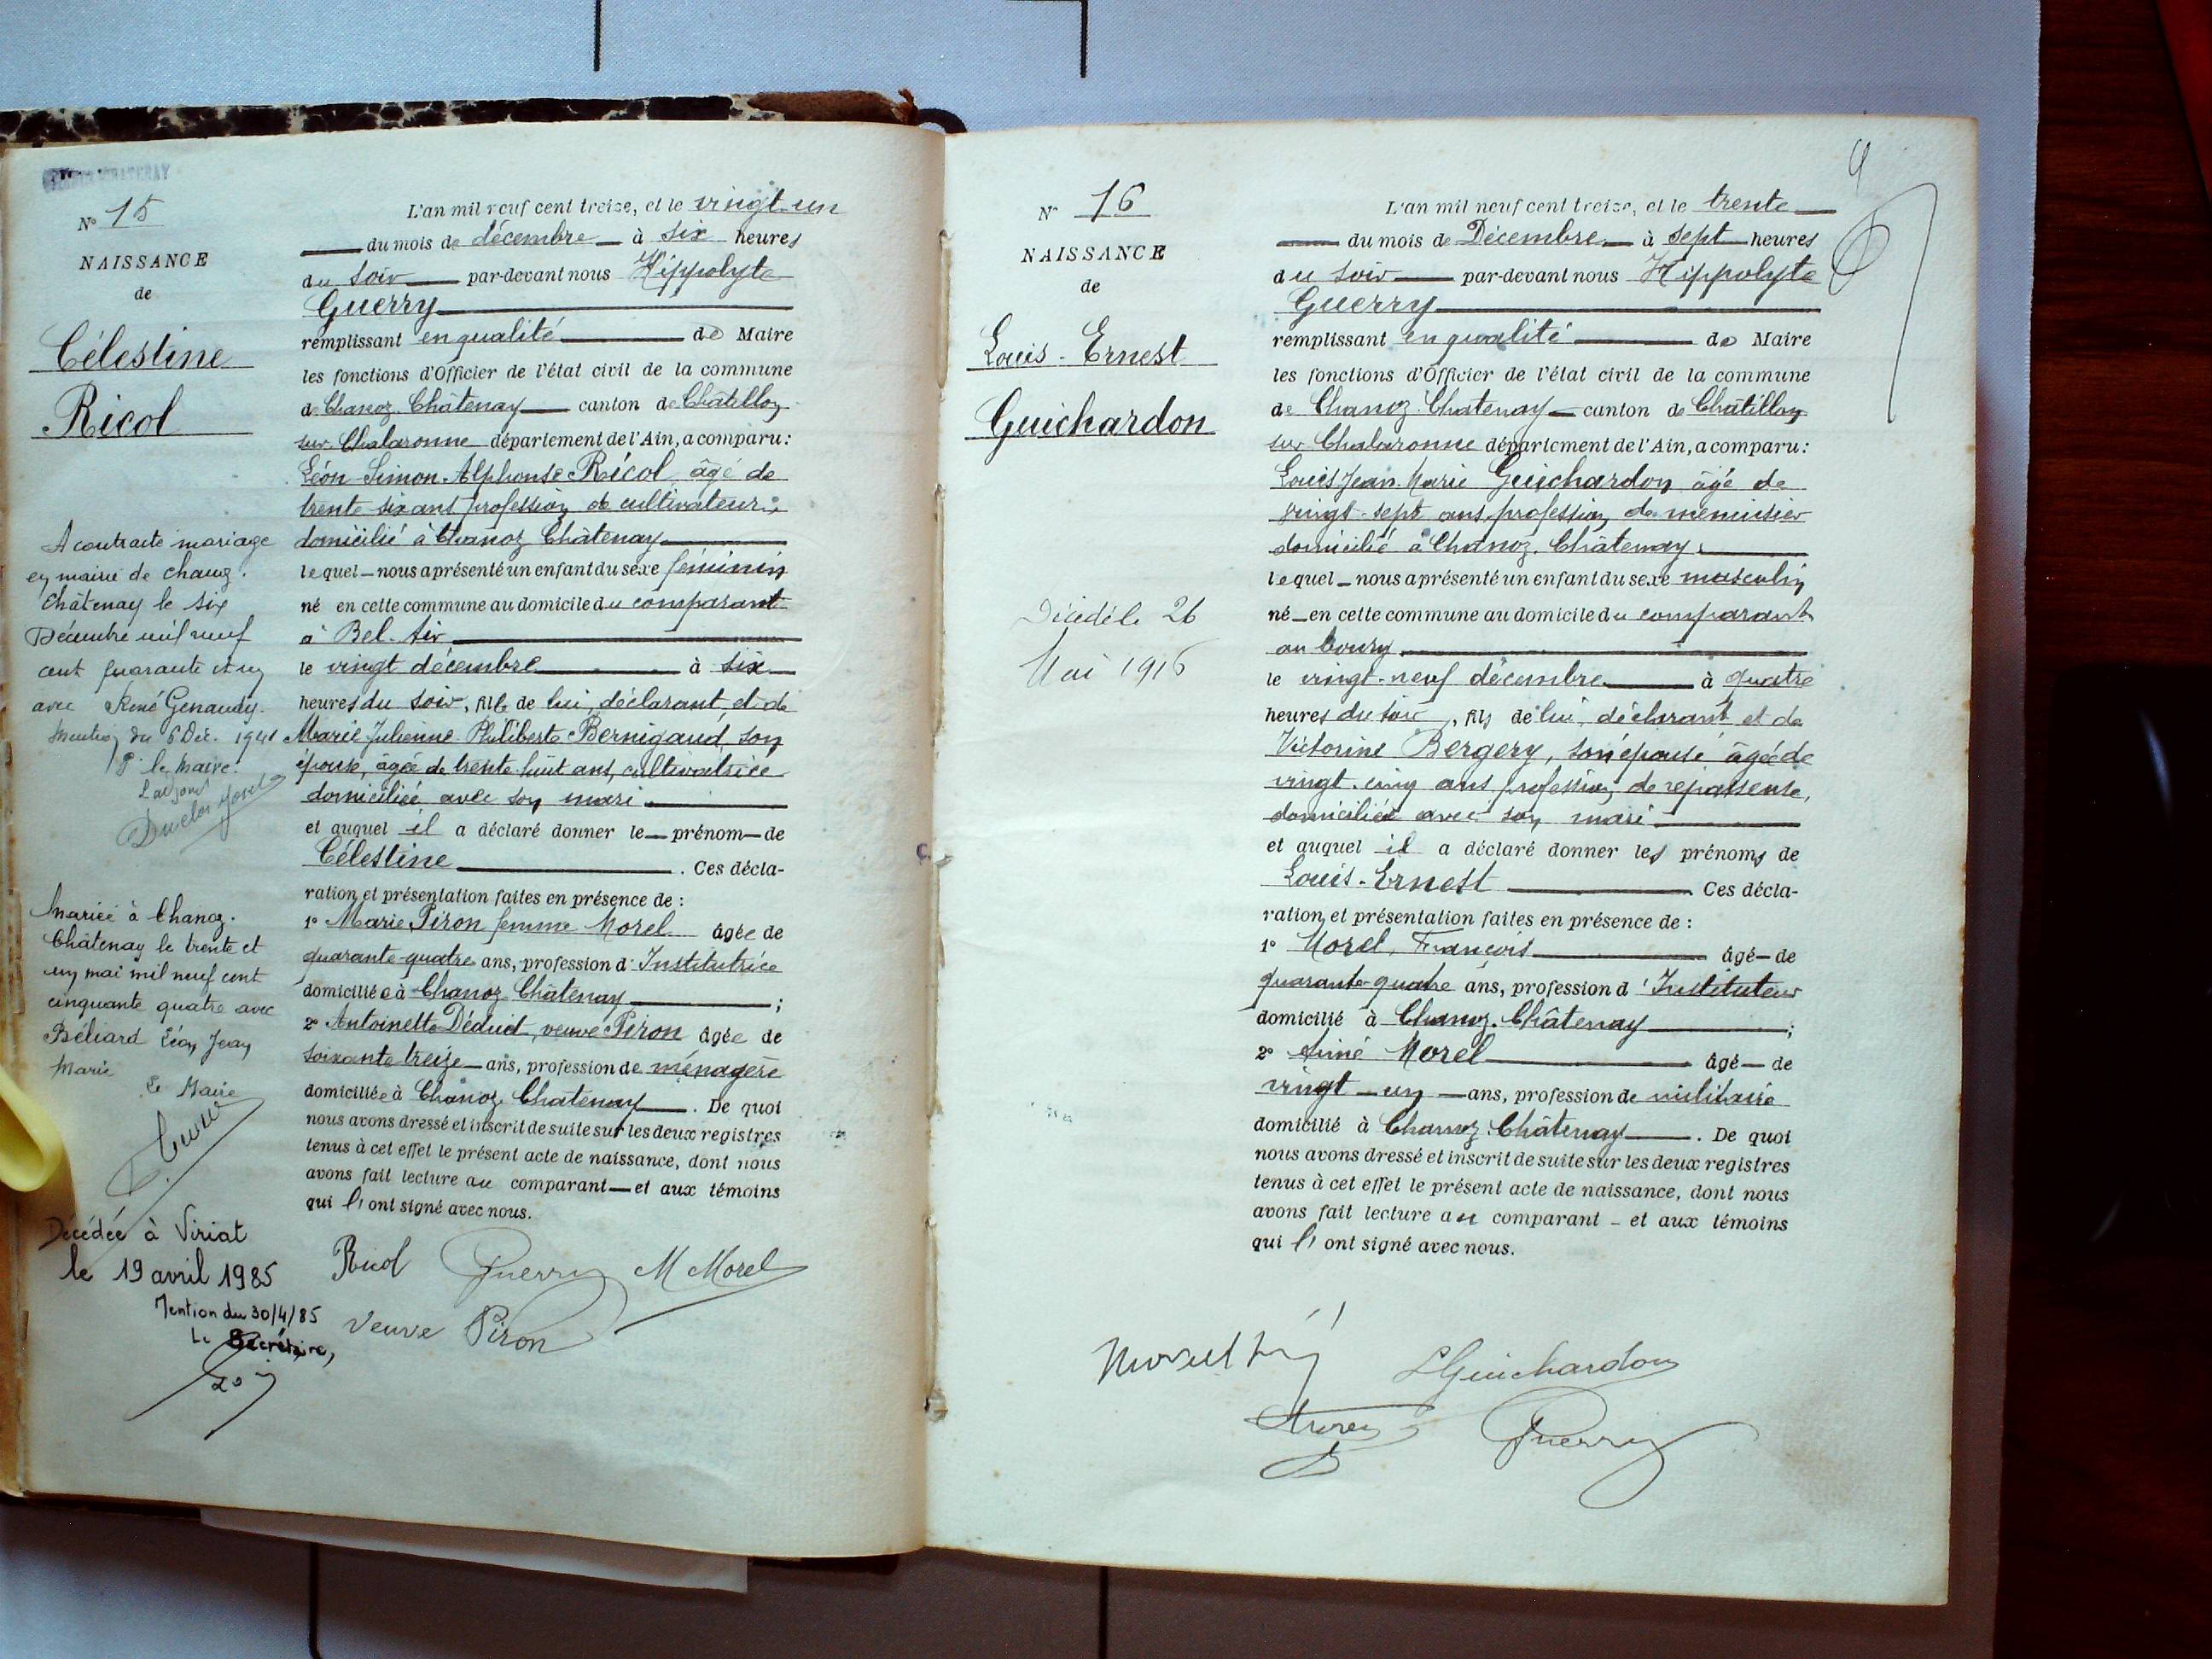 N° 15
NAISSANCE
de
Célestine
Ricol
A contracté mariage
en mairie de Chanoz-
Châtenay le six
Décembre mil neuf
cent quarante et un
avec René Genaudy.
Mention du 6 Déc. 1941
P. le Maire.
L'adjoint
Mariée à Chanoz-
Châtenay le trente et
un mai mil neuf cent
cinquante quatre avec
Béliard Léon Jean
Marie
Le Maire
Décédée à Viriat
le 19 avril 1985
Mention du 30/4/85
Le Secrétaire,
L'an mil neuf cent treize, et le vingt-un
du mois de décembre à six heures
du soir par-devant nous Hippolyte
Guerry
remplissant en qualité de Maire
les fonctions d'Officier de l'état civil de la commune
de Chanoz-Châtenay canton de Châtillon
sur Chalaronne département de l'Ain, a comparu:
Léon Simon Alphonse Ricol âgé de
trente six ans profession de cultivateur
domicilié à Chanoz Châtenay
lequel nous a présenté un enfant du sexe féminin
né en cette commune au domicile du comparant
à Bel-Air
le vingt décembre à six
heures du soir, fille de lui, déclarant, et de
Marie Julienne Philiberte Bernigaud, son
épouse, âgée de trente huit ans, cultivatrice
domiciliée avec son mari
et auquel il a déclaré donner le prénom de
Célestine. Ces décla-
ration et présentation faites en présence de :
1° Marie Piron femme Morel âgée de
quarante-quatre ans, profession d'Institutrice
domiciliée à Chanoz Châtenay ;
2° Antoinette Déduit, veuve Piron âgée de
soixante treize ans, profession de ménagère
domiciliée à Chanoz Chatenay. De quoi
nous avons dressé et inscrit de suite sur les deux registres
tenus à cet effet le présent acte de naissance, dont nous
avons fait lecture au comparant et aux témoins
qui l'ont signé avec nous.
Ricol Guerry M Morel
Veuve Piron
N° 16
NAISSANCE
de
Louis-Ernest
Guichardon
Décédé le 26
Mai 1916
L'an mil neuf cent treize, et le trente
du mois de Décembre à sept heures
du soir par-devant nous Hippolyte
Guerry
remplissant en qualité de Maire
les fonctions d'Officier de l'état civil de la commune
de Chanoz-Chatenay canton de Châtillon
sur Chalaronne département de l'Ain, a comparu:
Louis Jean-Marie Guichardon âgé de
vingt-sept ans, profession de menuisier
domicilié à Chanoz-Châtenay,
lequel nous a présenté un enfant du sexe masculin
né en cette commune au domicile du comparant
au bourg
le vingt-neuf décembre à quatre
heures du soir, fils de lui, déclarant et de
Victorine Bergery, son épouse âgée de
vingt-cinq ans profession de repasseuse,
domiciliée avec son mari
et auquel il a déclaré donner les prénoms de
Louis-Ernest Ces décla-
ration et présentation faites en présence de :
1° Morel, François âgé de
quarante-quatre ans, profession d'Instituteur
domicilié à Chanoz-Châtenay ;
2° Aimé Morel âgé de
vingt-un ans, profession de militaire
domicilié à Chanoz-Châtenay. De quoi
nous avons dressé et inscrit de suite sur les deux registres
tenus à cet effet le présent acte de naissance, dont nous
avons fait lecture au comparant et aux témoins
qui l'ont signé avec nous.
LGuichardon
Guerry